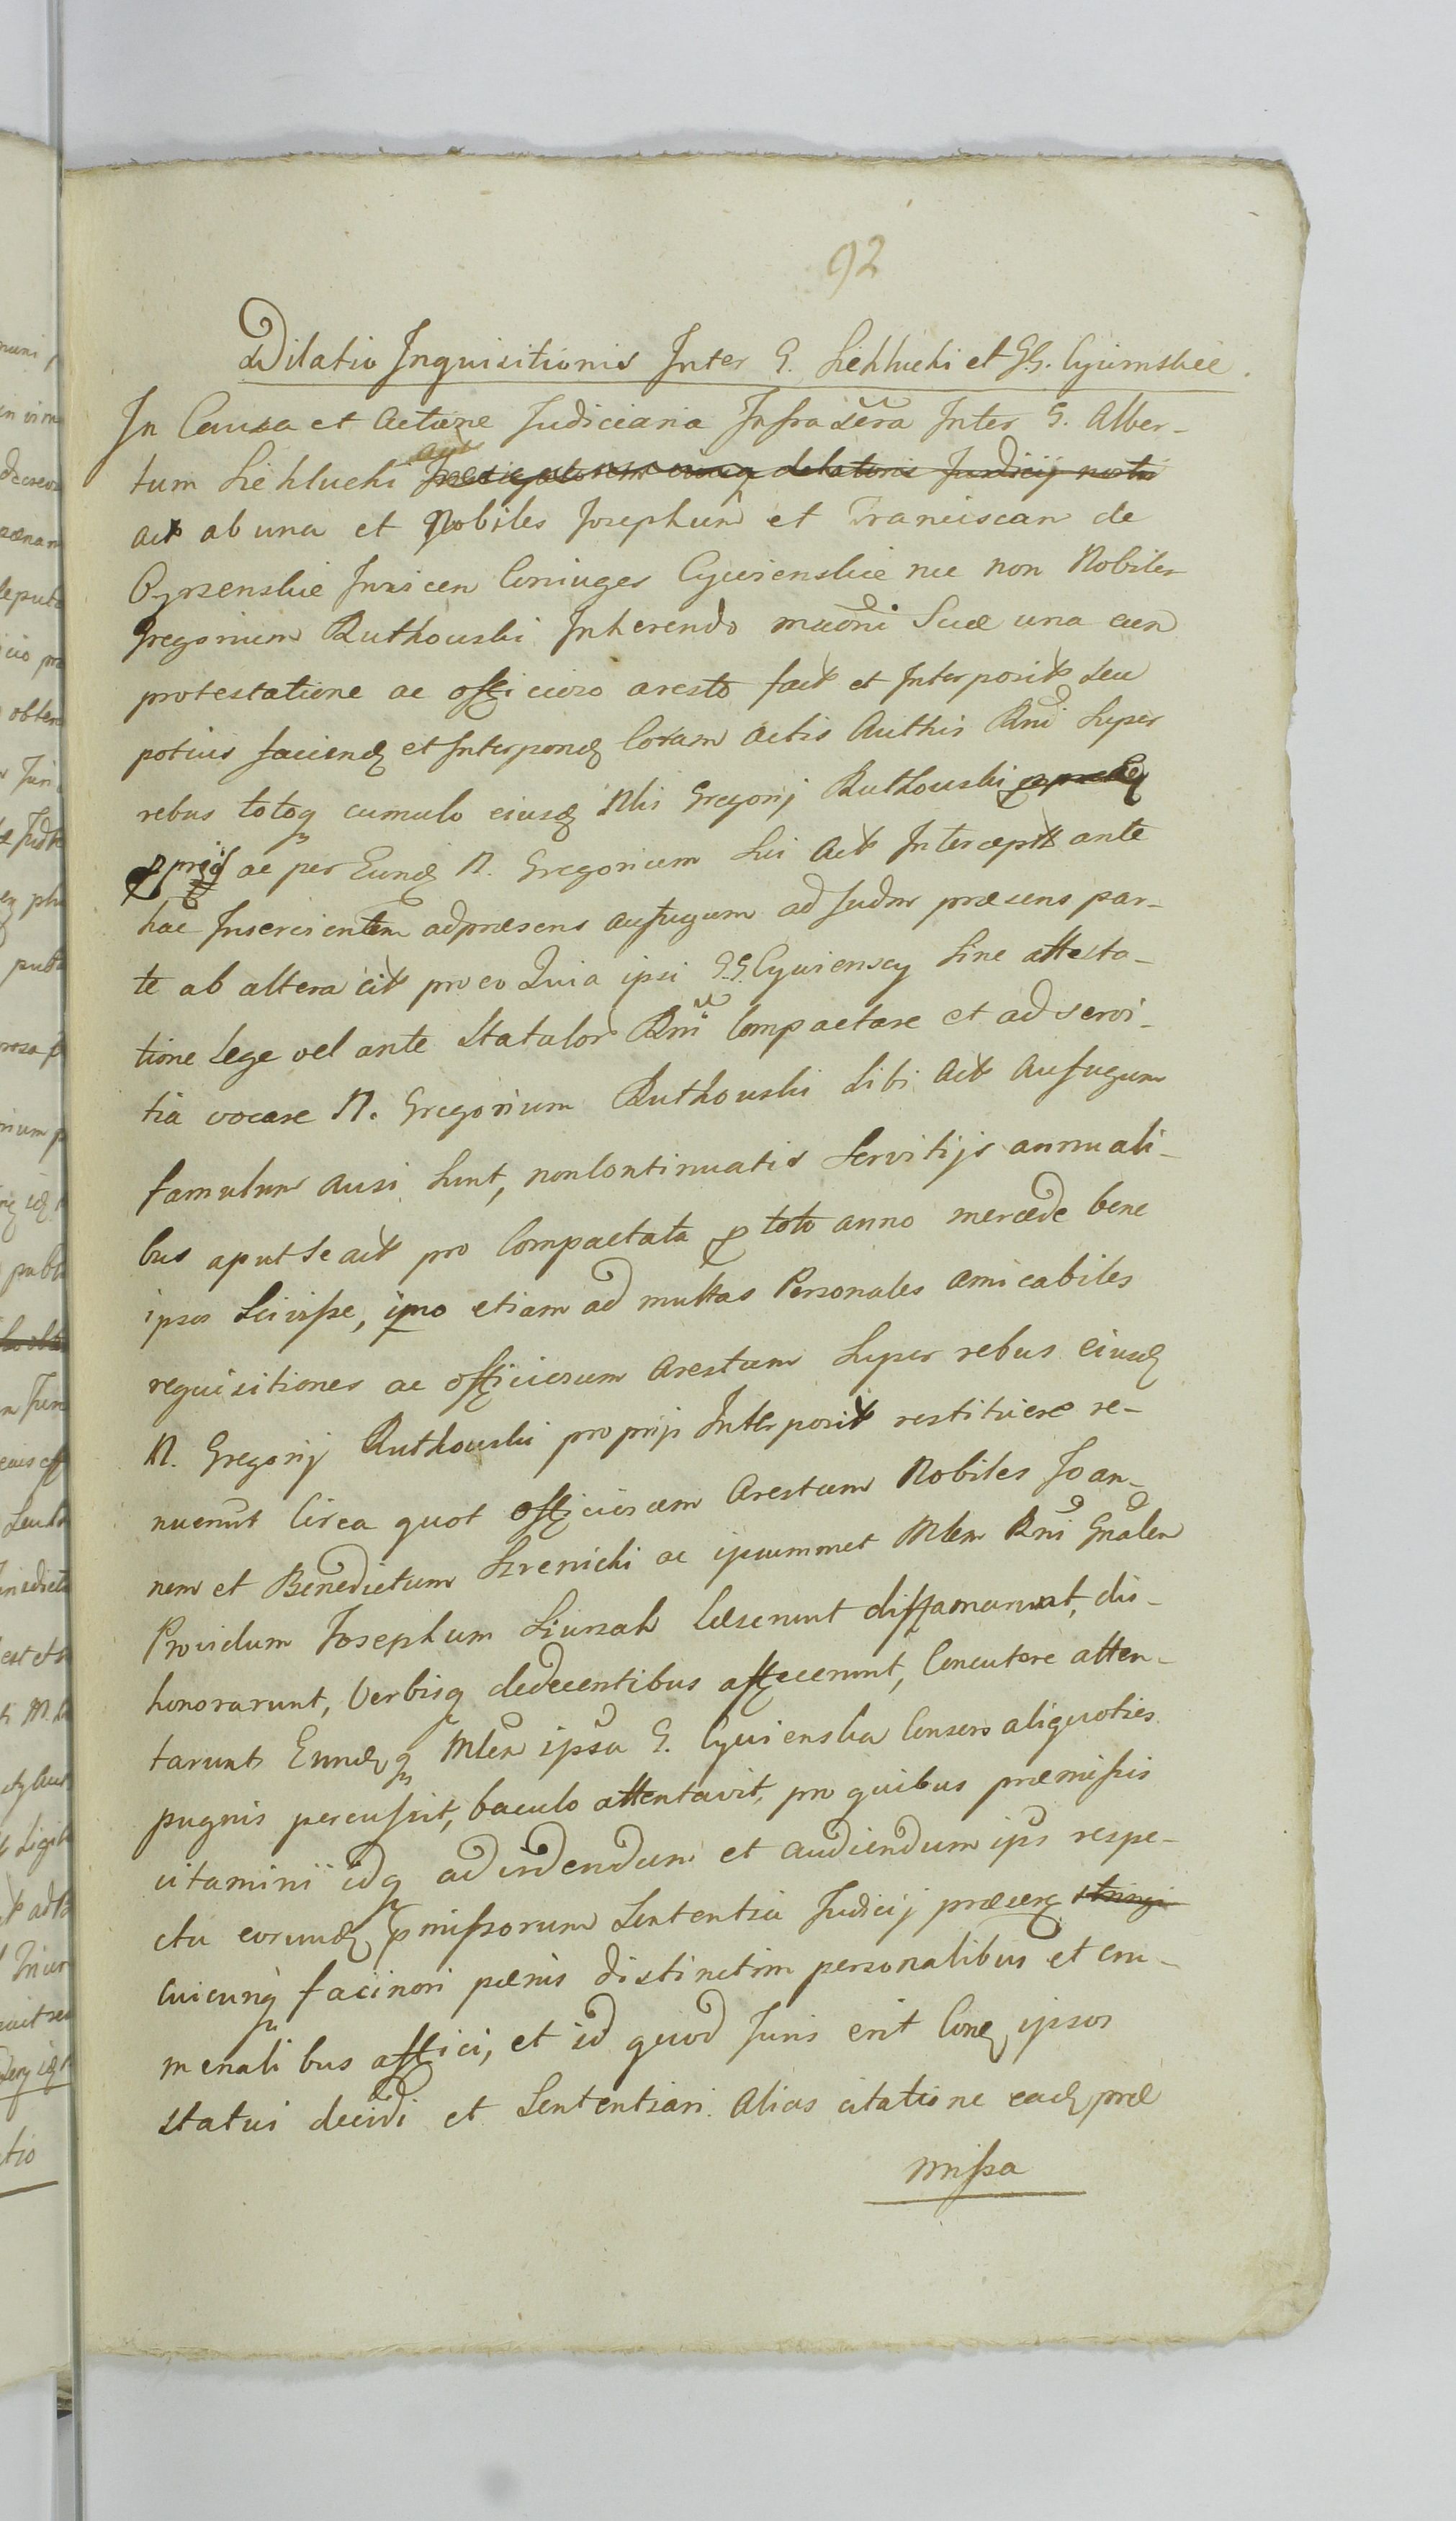 92
Dilatio Inquisitionis Inter G. Siekłucki et GG. Cywinskie.
In Causa et Actione Judiciaria Infra Scra Inter G. Alber-
tum Siekłucki Instigatorem eiusq delatoris Judicij nostri
act ab una et Nobiles Josephum et Franciscam de
Juricem Coniuges Cywienskie nec non Nobilem
Gregorium Rutkouski Inherendo maõni Suæ una cum
protestatione ac officioso aresto fact et Interposit seu
potius faciendꝫ et Interponendꝫ Coram Actis Authis Rni Super
rebus totoq cumulo eiusdꝫ Nlis Gregorij Rutkouski
proprijs ac per Eundꝫ N. Gregorium Sui Act Intercept ante
hac Inservientem adpræsens aufugum ad Judm præsens par-
te ab altera cit pro eo Quia ipsi G.G. Cywienscy Sine attesta-
tione Lege vel ante Statalor Rni Compactare et ad servi-
tia vocare N. Gregorium Rutkouski Sibi Act Aufugum
famulum Ausi Sunt, non Continuatis Servitijs annuali-
bus aput Se act pro Compactata p toto anno mercede bene
ipsos Scivisse, imo etiam ad multas Personales amicabiles
requisitiones ac officiosum Arestum Super rebus eiusdꝫ
N. Gregorij Rutkouski proprijs Interposit restituere re-
nuerunt Circa quot officiosum Arestum Nobiles Joan-
nem et Benedictum Skrenicki ac ipsummet Mlem Rni Gnalem
Providum Josephum Siurzak Læserunt diffamarunt, dis-
honorarunt, Verbisq dedecentibus affecerunt, Concutere atten-
tarunt Eundꝫq Mlem ipsa G. Cywienska Consors aliquoties
pugnis percussit, baculo attentavit, pro quibus præmissis
citamini idq ad videndum et audiendum ips respe-
ctu eorundꝫ pmissorum Sententia Judicij præseñ stringi
Cuicunq facinori pænis distinctim personalibus et cru-
menalibus affici, et id quod Juris erit Cone ipsos
statui decidi et Sententiari. Alias citatione eadꝫ præ
missa